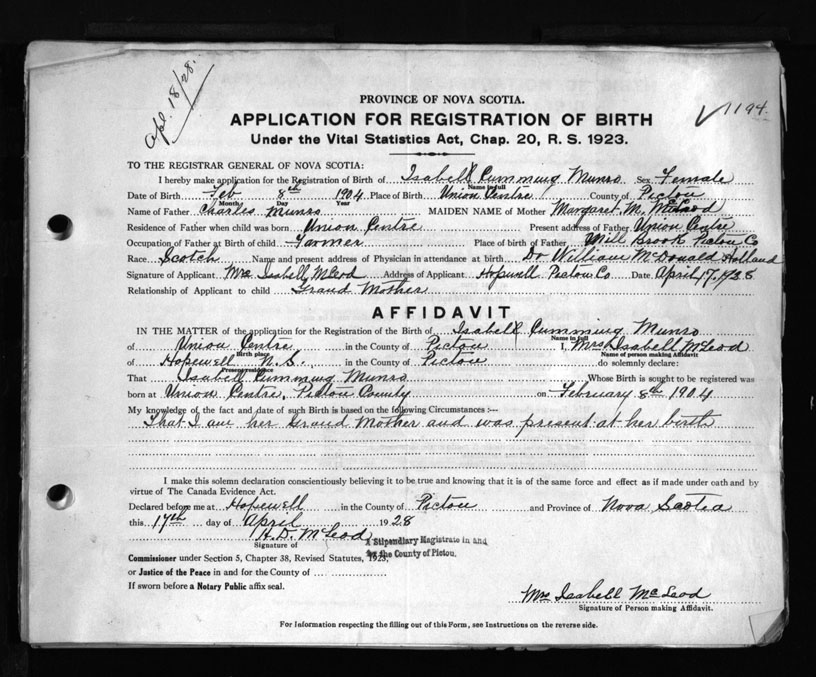 Apl. 18/28.
1194.
PROVINCE OF NOVA SCOTIA.
APPLICATION FOR REGISTRATION OF BIRTH
Under the Vital Statistics Act, Chap. 20, R. S. 1923.
TO THE REGISTRAR GENERAL OF NOVA SCOTIA:
I hereby make application for the Registration of Birth of Isabell Cumming Munro Sex Female
Name in full
Date of Birth Feb 8th 1904 Place of Birth Union Centre County of Pictou
Month Day
Name of Father Charles Munro MAIDEN NAME of Mother Margaret M. McLeod
Residence of Father when child was born Union Centre Present address of Father Union Centre
Occupation of Father at Birth of child Farmer Place of birth of Father Mill Brook Pictou Co
Race Scotch Name and present address of Physician in attendance at birth Dr William McDonald Holland
Signature of Applicant Mrs Isabell McLeod Address of Applicant Hopwell Pictou Co Date April 17, 1928
Relationship of Applicant to child Grand Mother
AFFIDAVIT
IN THE MATTER of the application for the Registration of the Birth of Isabell Cumming Munro
Name in full
of Union Centre in the County of Pictou I, Mrs Isabell McLeod
Birth place Name of person making Affidavit
of Hopewell N.S. in the County of Pictou do solemnly declare:
Present residence
That Isabell Cumming Munro Whose Birth is sought to be registered was
born at Union Centre, Pictou County on February 8th 1904
My knowledge of the fact and date of such Birth is based on the following Circumstances :—
That I am her Grand Mother and was present at her birth
I make this solemn declaration conscientiously believing it to be true and knowing that it is of the same force and effect as if made under oath and by
virtue of The Canada Evidence Act.
Declared before me at Hopewell in the County of Pictou and Province of Nova Scotia
this 17th day of April 1928
H. D. McLeod
Signature of
A Stipendiary Magistrate in and
for the County of Pictou.
Commissioner under Section 5, Chapter 38, Revised Statutes, 1923,
or Justice of the Peace in and for the County of
If sworn before a Notary Public affix seal.
Mrs Isabell McLeod
Signature of Person making Affidavit.
For Information respecting the filling out of this Form, see Instructions on the reverse side.